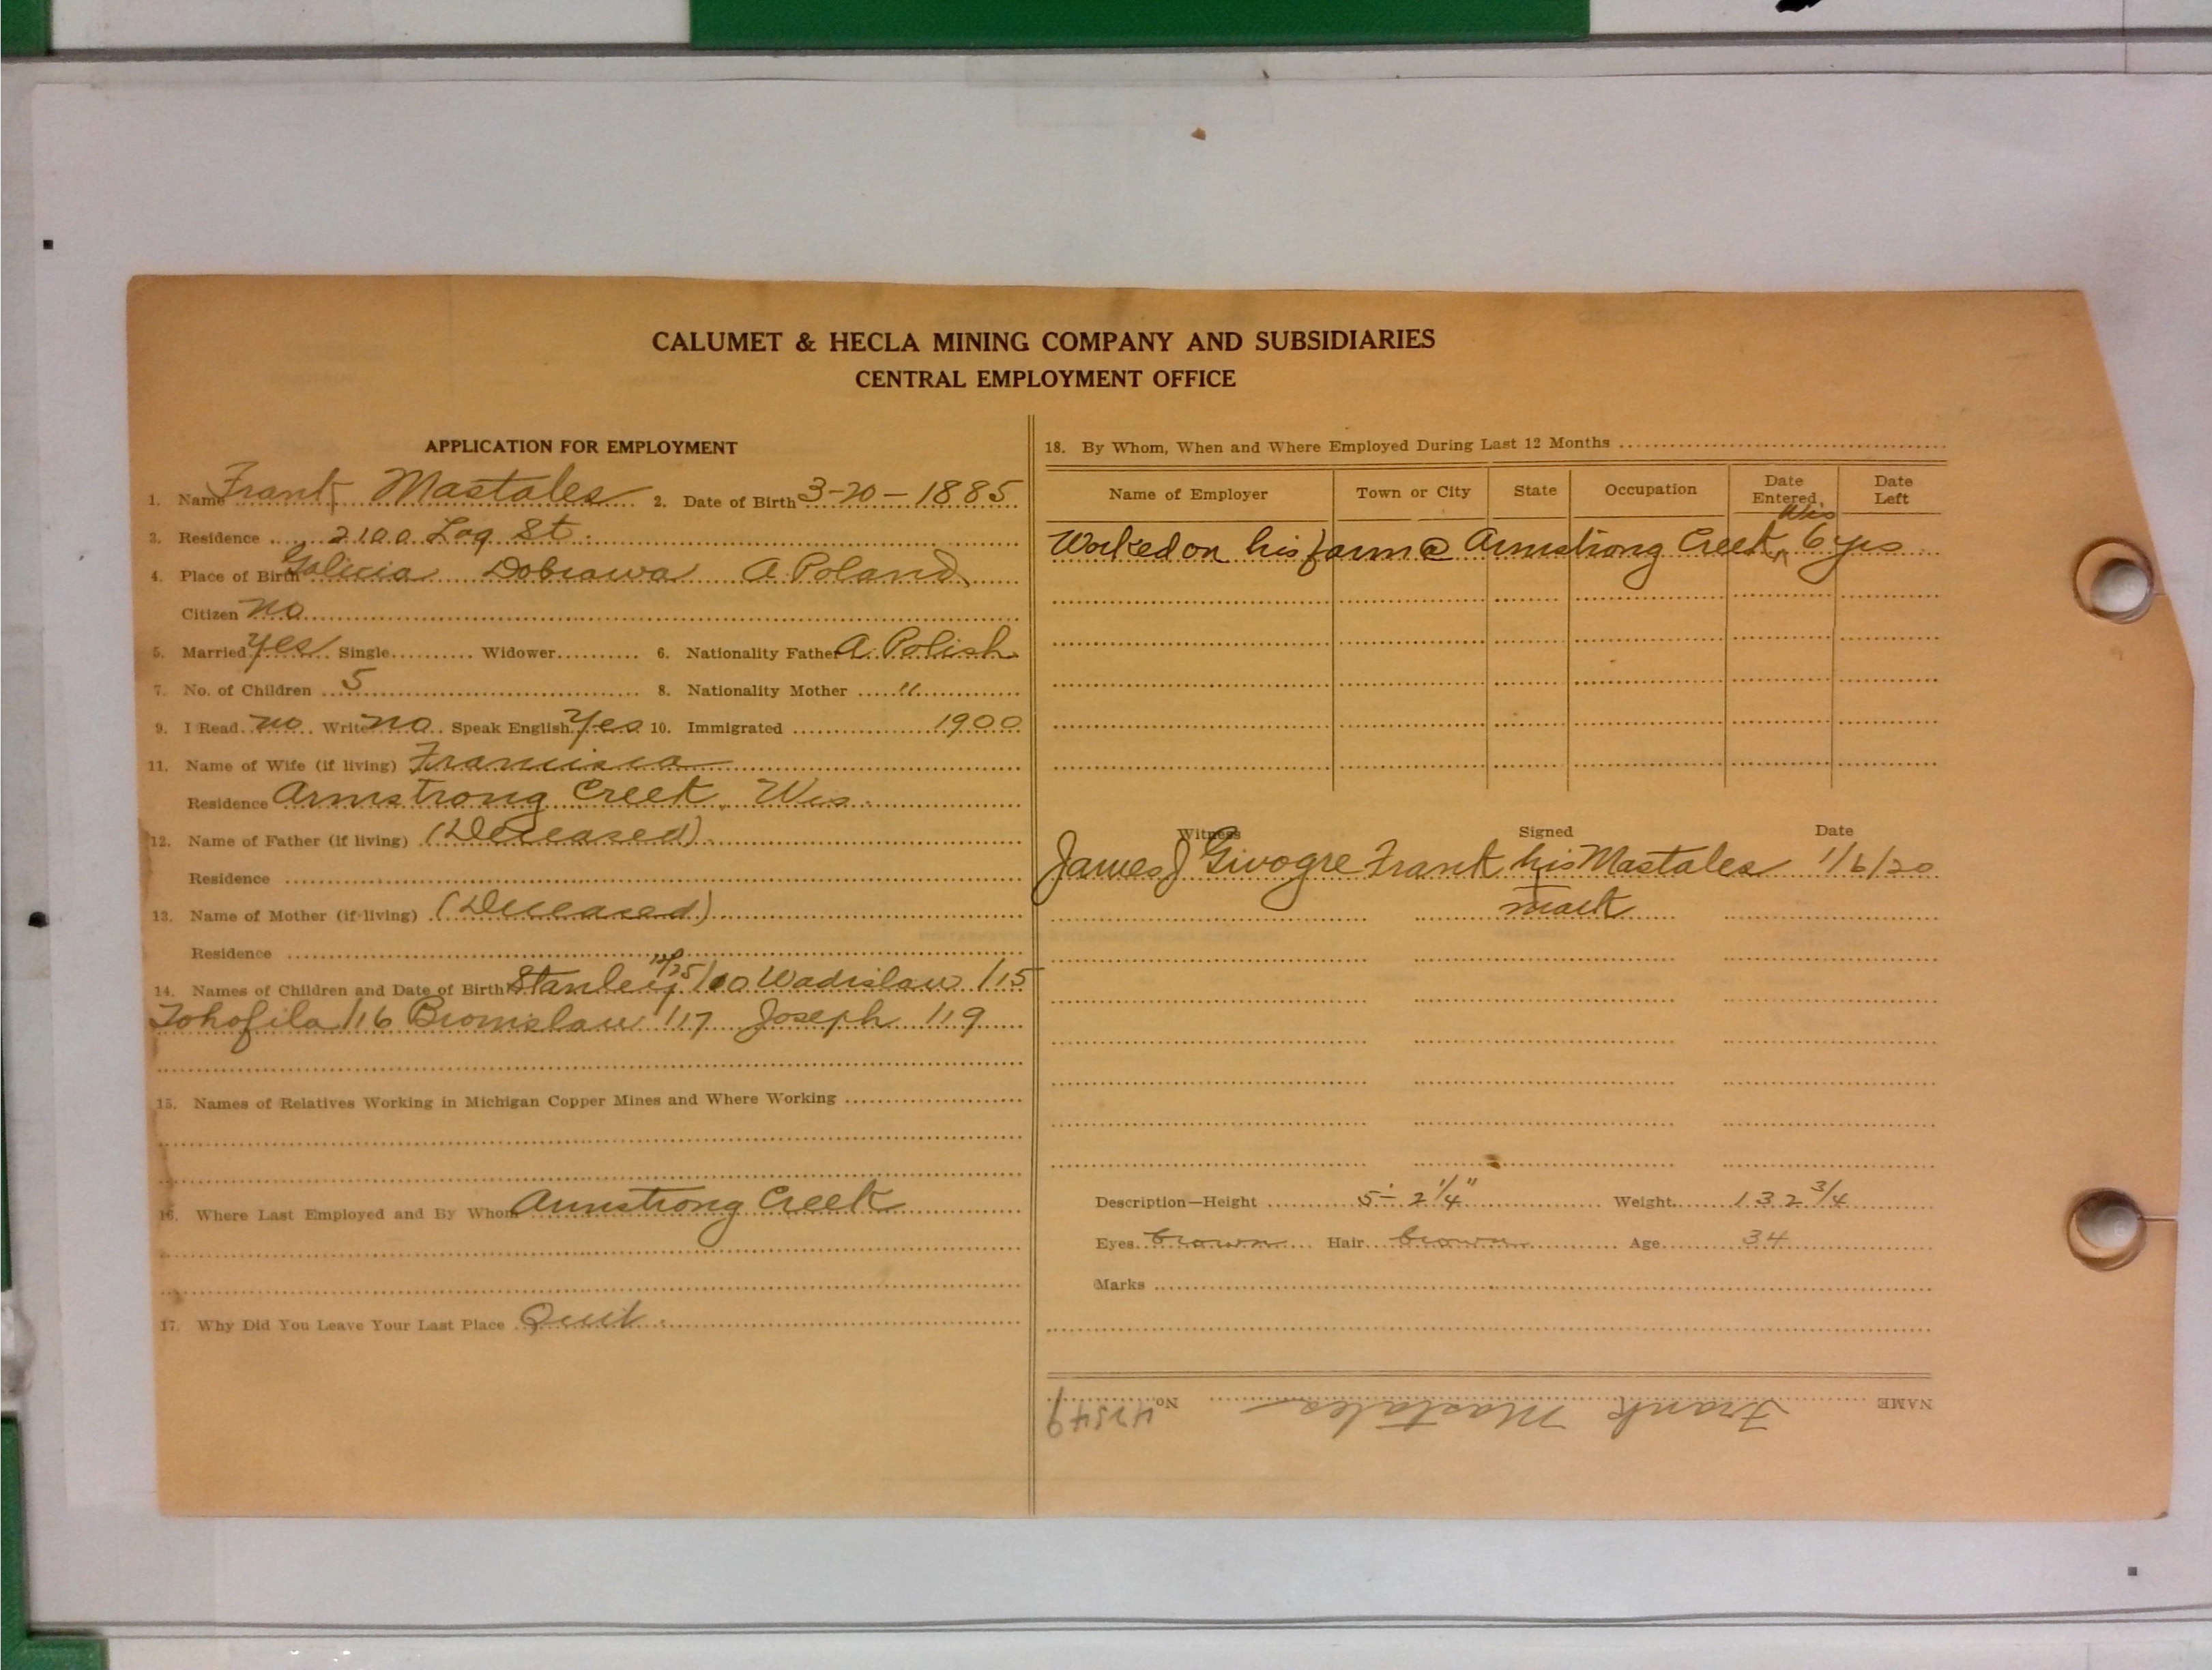 CALUMET & HECLA MINING COMPANY AND SUBSIDIARIES
CENTRAL EMPLOYMENT OFFICE
APPLICATION FOR EMPLOYMENT
1. Name Frank Mastales 2. Date of Birth 3-20-1885
3. Residence 2100 Log St.
4. Place of Birth Galicia Dobrawa A. Poland
Citizen no
5. Married yes Single Widower 6. Nationality Father A. Polish
7. No. of Children 5 8. Nationality Mother "
9. I Read no Write no Speak English Yes 10. Immigrated 1900
11. Name of Wife (if living) Francisca
Residence Armstrong Creek, Wis.
12. Name of Father (if living) (Deceased)
Residence
13. Name of Mother (if living) (Deceased)
Residence
14. Names of Children and Date of Birth Stanley Wadislaw /15
Tohofila /16 Bronislaw /17 Joseph /19
15. Names of Relatives Working in Michigan Copper Mines and Where Working
16. Where Last Employed and By Whom Armstrong Creek
17. Why Did You Leave Your Last Place Quit.
18. By Whom, When and Where Employed During Last 12 Months
Name of Employer Town or City State Occupation Date Entered Date Left
Worked on his farm @ Armstrong Creek, Wis 6 yrs
Witness Signed Date
James J Givogre Frank his Mastales 1/6/20
mark
Description—Height 5'-2 1/4" Weight 132 3/4
Eyes brown Hair brown Age 34
Marks
NAME Frank Mastales No. 42549